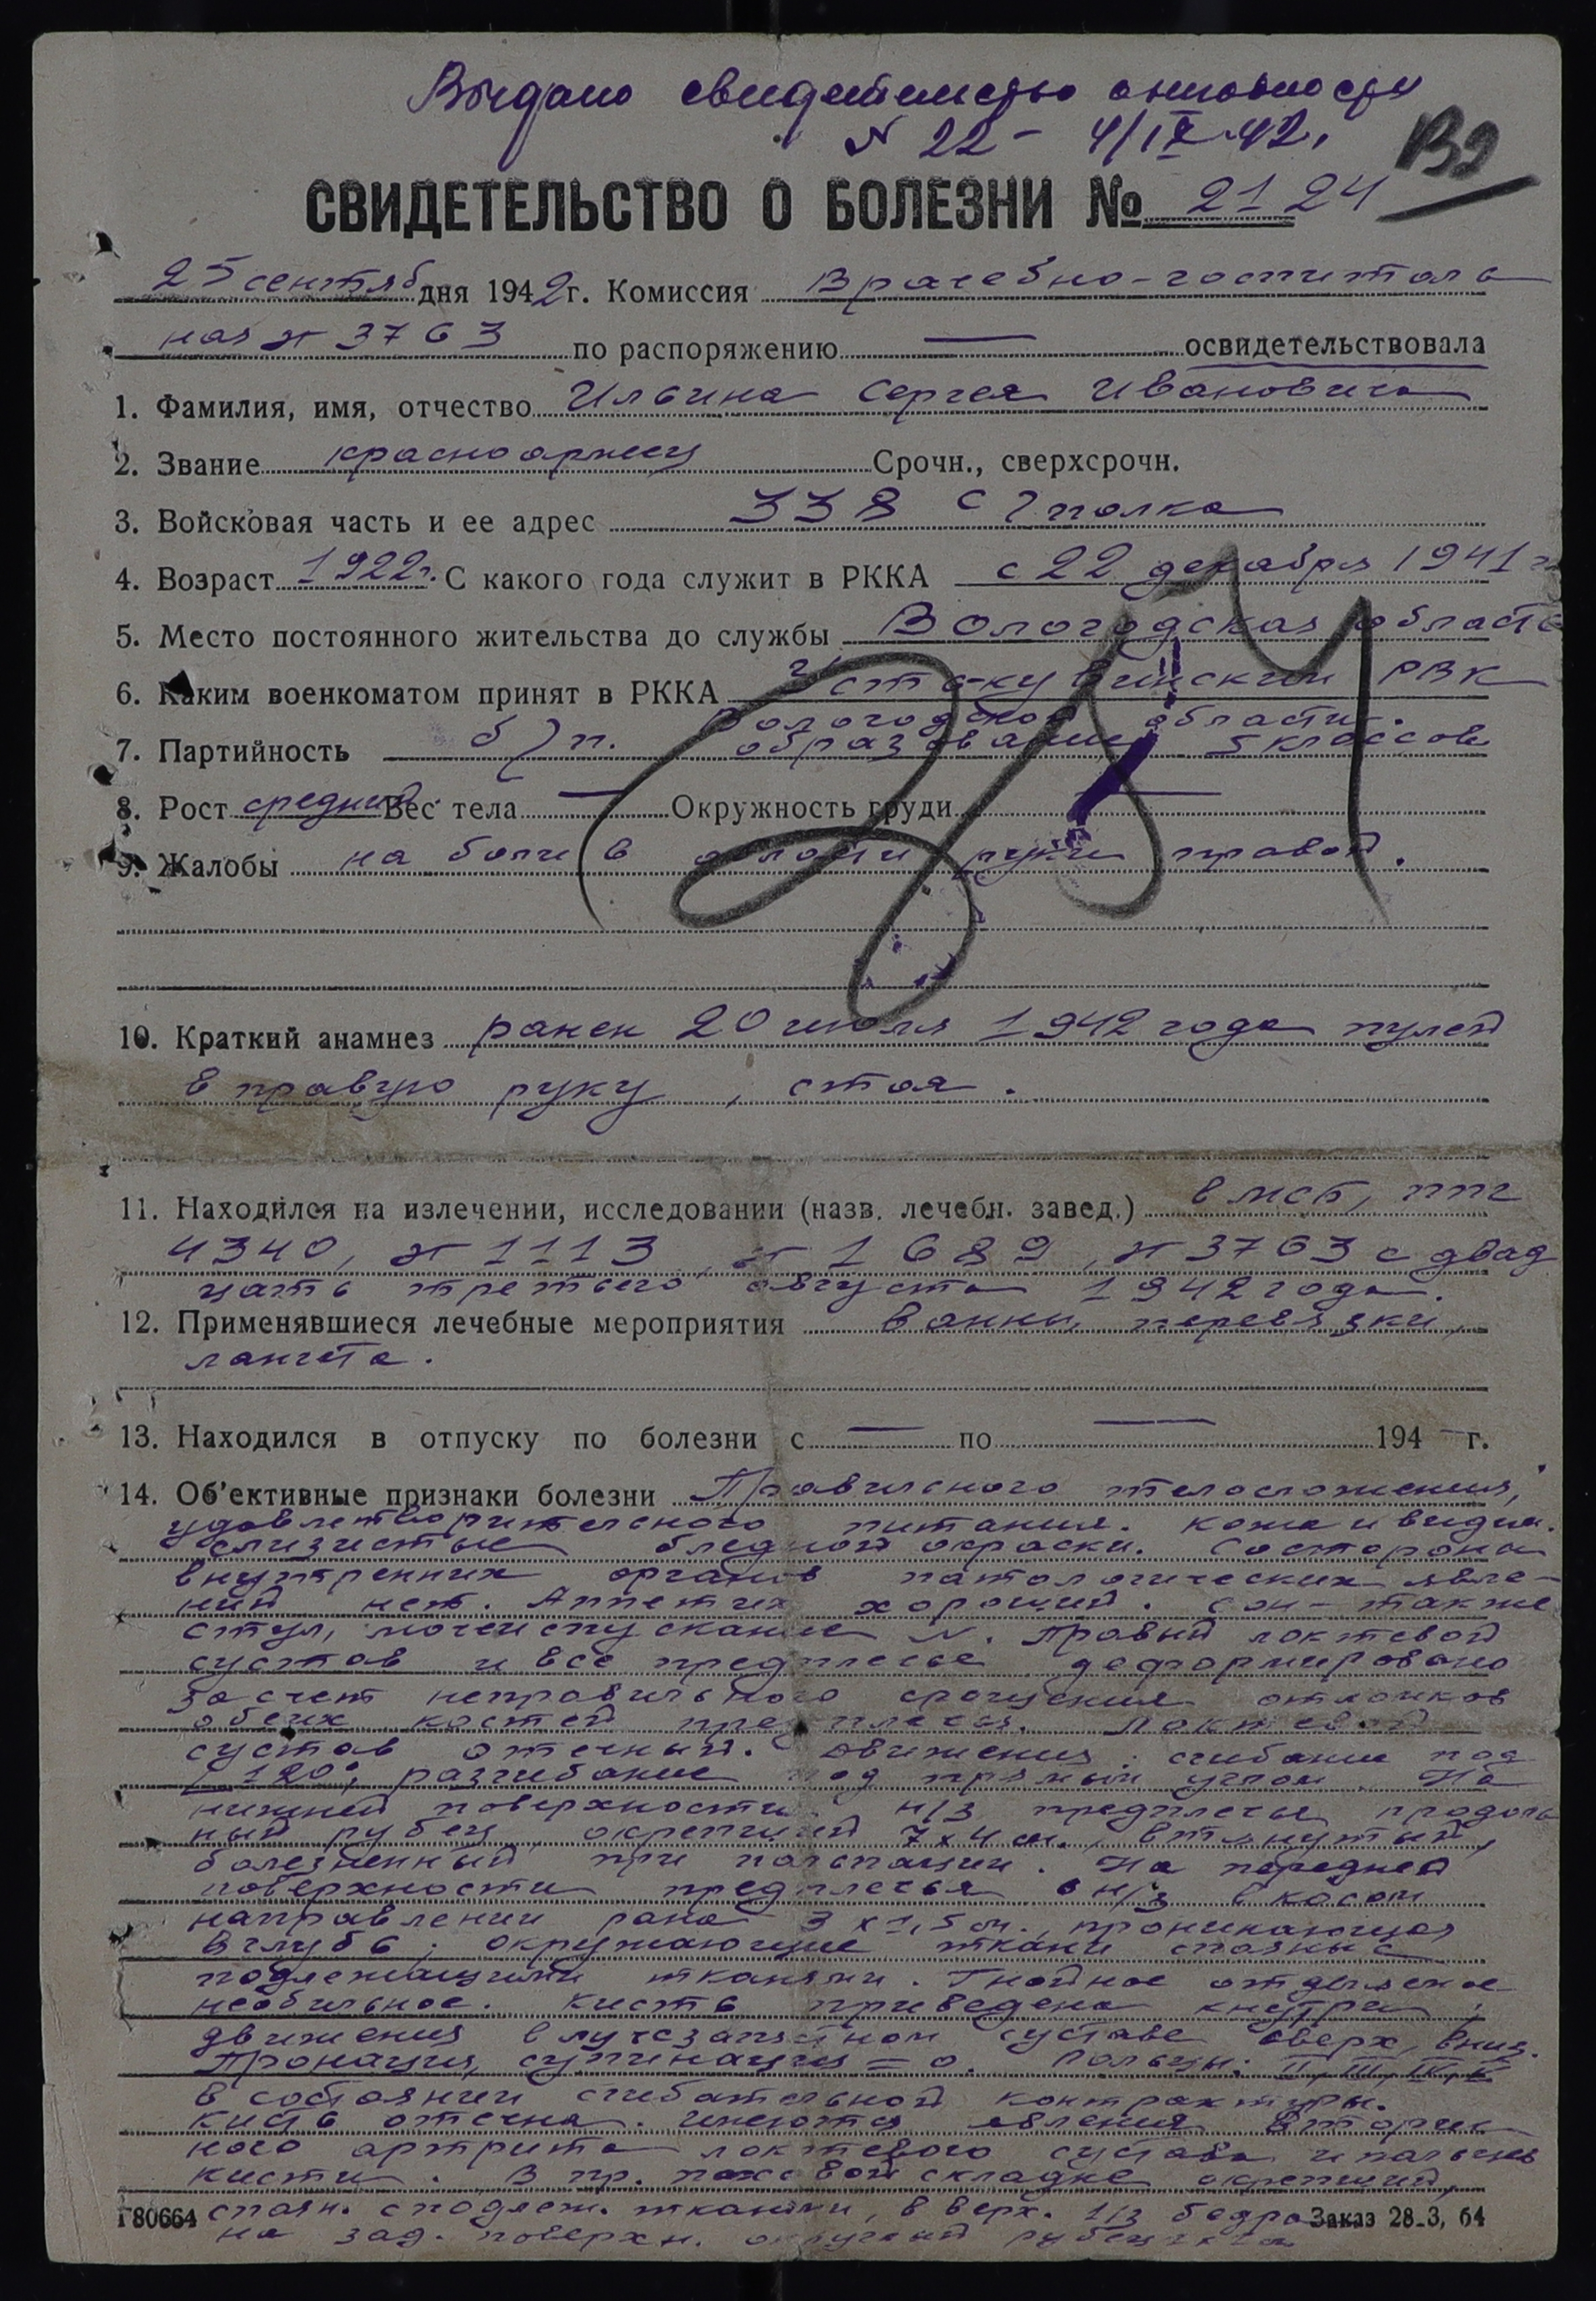 Выдано свидетельство
N 22 - 4/IX 42.
В2
СВИДЕТЕЛЬСТВО О БОЛЕЗНИ № 2124
25 сентяб дня 1942 г. Комиссия Врачебно-госпиталь
ная № 3763 по распоряжению — освидетельствовала
1. Фамилия, имя, отчество Ильина Сергея Ивановича
2. Звание красноармеец Срочн., сверхсрочн.
3. Войсковая часть и ее адрес 338 с/полка
4. Возраст 1922г. С какого года служит в РККА с 22 декабря 1941 г
5. Место постоянного жительства до службы Вологодская область
6. Каким военкоматом принят в РККА Усть-Кубинский РВК
Вологодской области.
7. Партийность б/п. образование 5 классов
8. Рост средний Вес тела — Окружность груди —
9. Жалобы на боли в области руки правой.
10. Краткий анамнез ранен 20 июля 1942 года пулей
в правую руку, стоя.
11. Находился на излечении, исследовании (назв. лечебн. завед.) в мсб, ппг
4340, № 1113, № 1689, № 3763 с двад
цать третьего августа 1942 года.
12. Применявшиеся лечебные мероприятия ванны, перевязки,
лангета.
13. Находился в отпуску по болезни с — по — 194 — г.
14. Об'ективные признаки болезни Правильного телосложения,
удовлетворительного питания. Кожа и видим.
слизистые бледной окраски. Со стороны
внутренних органов патологических явле-
ний нет. Аппетит хороший. Сон - также
стул, мочеиспускание N. Правый локтевой
сустав и все предплечье деформировано
за счет неправильного сращения отломков
обеих костей предплечья. Локтевой
сустав отечный. Движения: сгибание под
120°, разгибание под прямым углом. На
нижней поверхности н/з предплечья продоль
ный рубец окрепший 7x4 см., втянутый,
болезненный при пальпации. На передней
поверхности предплечья в н/з в косом
направлении рана 3 x 1,5 см., проникающая
вглубь; окружающие ткани спаяны с
подлежащими тканями. Гнойное отделяемое
необильное. Кисть приведена кнутри;
движения в лучезапястном суставе вверх, вниз.
Пронация, супинация = 0. Пальцы: II, III, IV, V
в состоянии сгибательной контрактуры.
Кисть отечна. Имеются явления вторич
ного артрита локтевого сустава и пальцев
кисти. В пр. паховой складке окрепший,
спаян. с подлеж. тканями, в верх. 1/3 бедра
на зад. поверхн.
Г80664 Заказ 28-3, 64